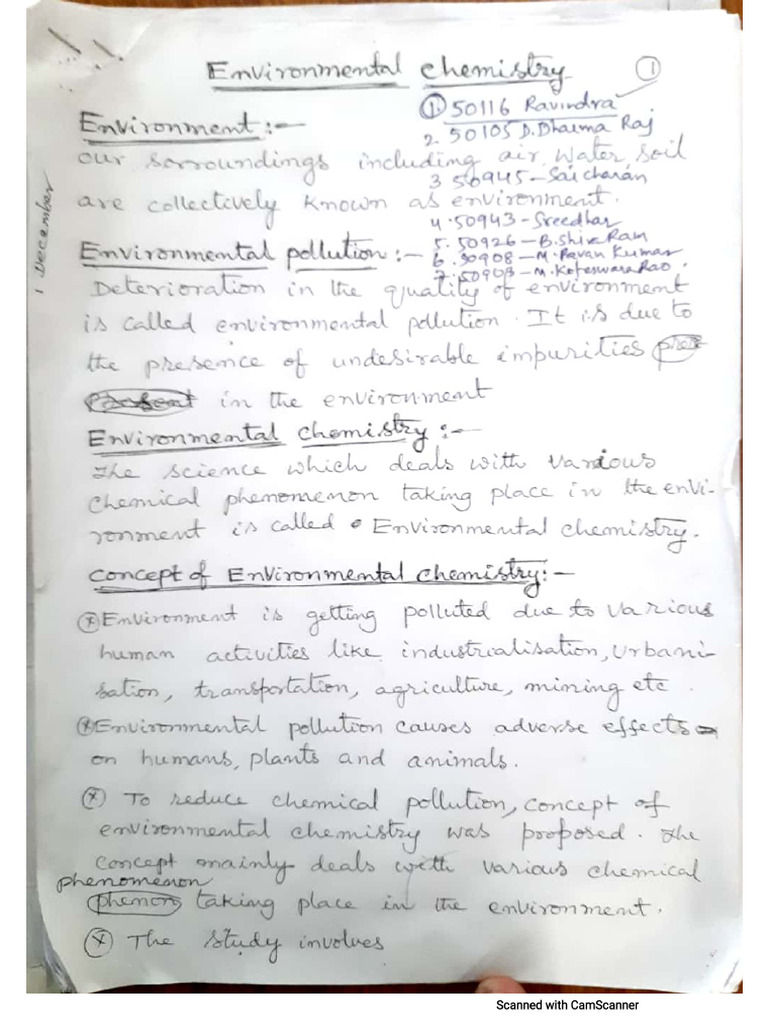 Environmental chemistry
1
Environment:-
1. 50116 Ravindra
2. 50105 D. Dharma Raj
our sorroundings including air, water, soil
3 50945-Saicharan
are collectively known as environment.
4. 50943-Sreedhar
5. 50926-B.Shiva Ram
6. 50908-M.Pavan Kumar
7. 50903-M.KoteswaraRao.
1 December
Environmental pollution:-
Deterioration in the quality of environment
is called environmental pollution. It is due to
the presence of undesirable impurities
in the environment
Environmental chemistry:-
The science which deals with various
chemical phenomenon taking place in the envi-
ronment is called Environmental chemistry.
concept of Environmental chemistry:-
Environment is getting polluted due to various
human activities like industrialisation, urbani-
sation, transportation, agriculture, mining etc.
Environmental pollution causes adverse effects
on humans, plants and animals.
To reduce chemical pollution, concept of
environmental chemistry was proposed. The
concept mainly deals with various chemical
phenomenon
taking place in the environment.
The study involves
Scanned with CamScanner